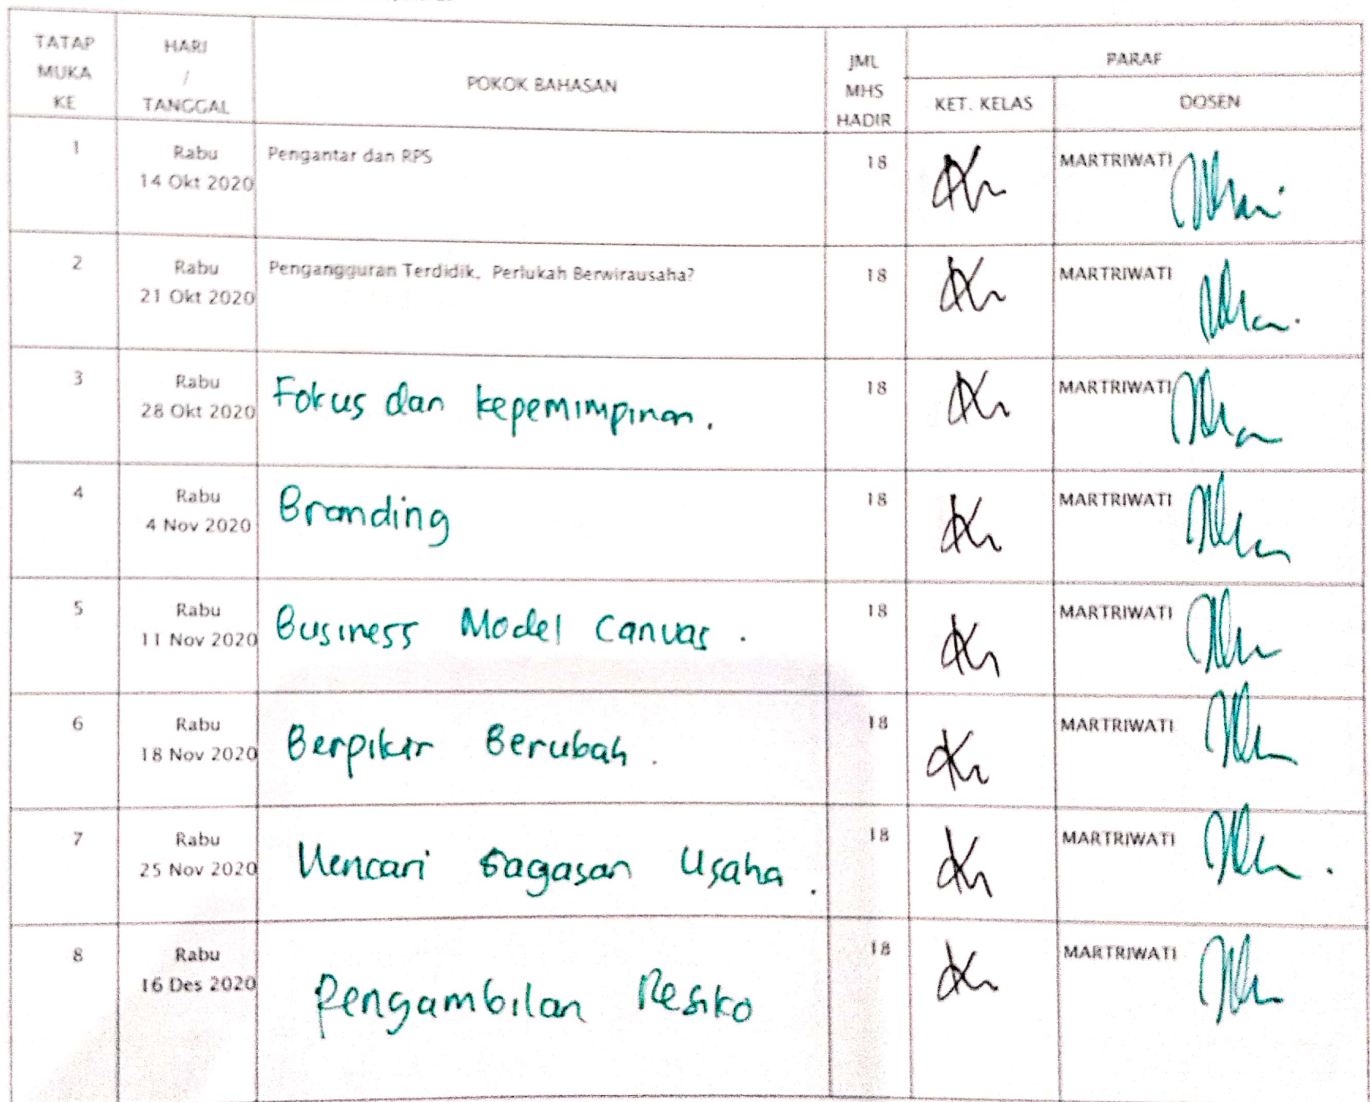 TATAP
MUKA
KE
HARI
/
TANGGAL
POKOK BAHASAN
JML
MHS
HADIR
PARAF
KET. KELAS
DOSEN
1
Rabu
14 Okt 2020
Pengantar dan RPS
18
MARTRIWATI
2
Rabu
21 Okt 2020
Pengangguran Terdidik, Perlukah Berwirausaha?
18
MARTRIWATI
3
Rabu
28 Okt 2020
Fokus dan kepemimpinan.
18
MARTRIWATI
4
Rabu
4 Nov 2020
Branding
18
MARTRIWATI
5
Rabu
11 Nov 2020
Business Model Canvas.
18
MARTRIWATI
6
Rabu
18 Nov 2020
Berpikir Berubah.
18
MARTRIWATI
7
Rabu
25 Nov 2020
Mencari Gagasan Usaha.
18
MARTRIWATI
8
Rabu
16 Des 2020
Pengambilan Resiko
18
MARTRIWATI